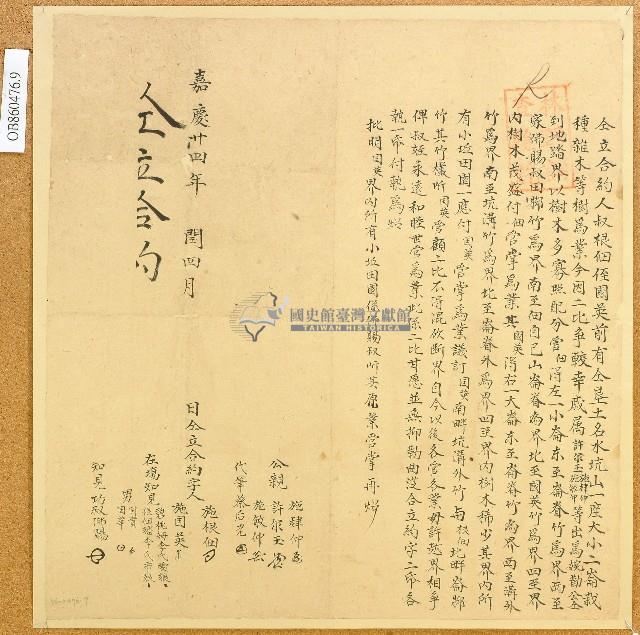 仝立合約人叔根佃侄國英前有仝墾土名水坑山一座大小二崙栽
種雜木等樹為業今因二比爭較幸戚属許荣玉施肆仲施敏仲等出為㧾勸仝仝
到地踏界以樹木多寡照配分管佃得左一小崙東至崙脊竹為界西至
家佛賜叔田脚竹為界南至佃自己山崙脊為界北至國英竹為界四至界
内樹木茂盛付佃管掌為業其國英得右一大崙東至崙脊竹為界西至溝外
竹為界南至坑溝竹為界北至崙脊外為界四至界内樹木稀少其界内所
有小坵田園一應付國英管掌為業議訂國英南畔坑溝外竹與根佃北畔崙
竹其竹欉听國英管顧二比不得混砍断界自今以後各管各業毋許越界相爭
俾叔姪永遠和睦世管為業此係二比甘愿並無抑勒曲從合立約字二紙各
執一紙付執為炤
批明國英界内所有小坵田園係佛賜叔听其
業管掌再炤
公親
許荣玉
施肆仲
施敏仲
代筆蔡
嘉慶廿四年 閏四月 日仝立合約字人
施根佃
施國英
在塲知見
男
知見
佛賜
仝立合約
國史館臺灣文獻館
TAIWAN HISTORICA
OB860476.9